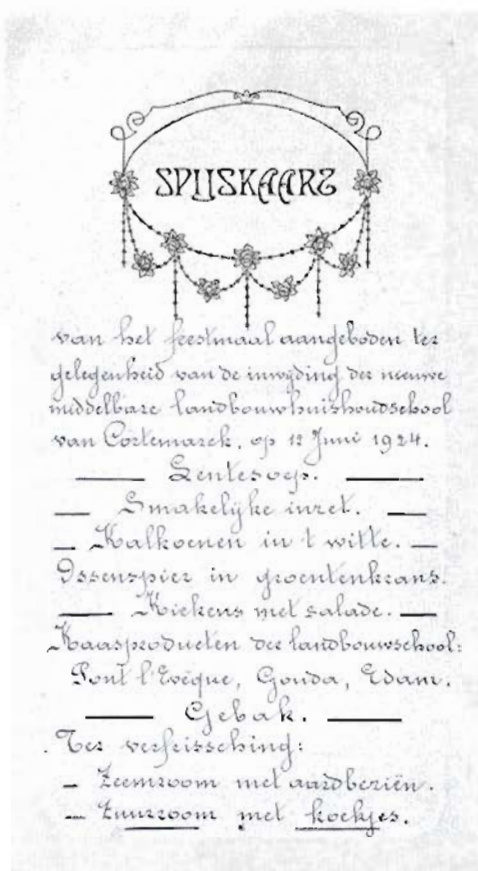 SPIJSKAART
van het feestmaal aangeboden ter
gelegenheid van de inwijding der nieuwe
middelbare landbouwhuishoudschool
van Cortemarck, op 12 Juni 1924.
Lentesoep.
Smakelijke inzet.
Kalkoenen in 't witte.
Ossenspier in groentenkrans.
Kiekens met salade.
Kaasproducten der landbouwschool:
Pont l'Evêque, Gouda, Edam.
Gebak.
Ter verfrissching:
- Zeemroom met aardbeziën.
- Zuurroom met koekjes.